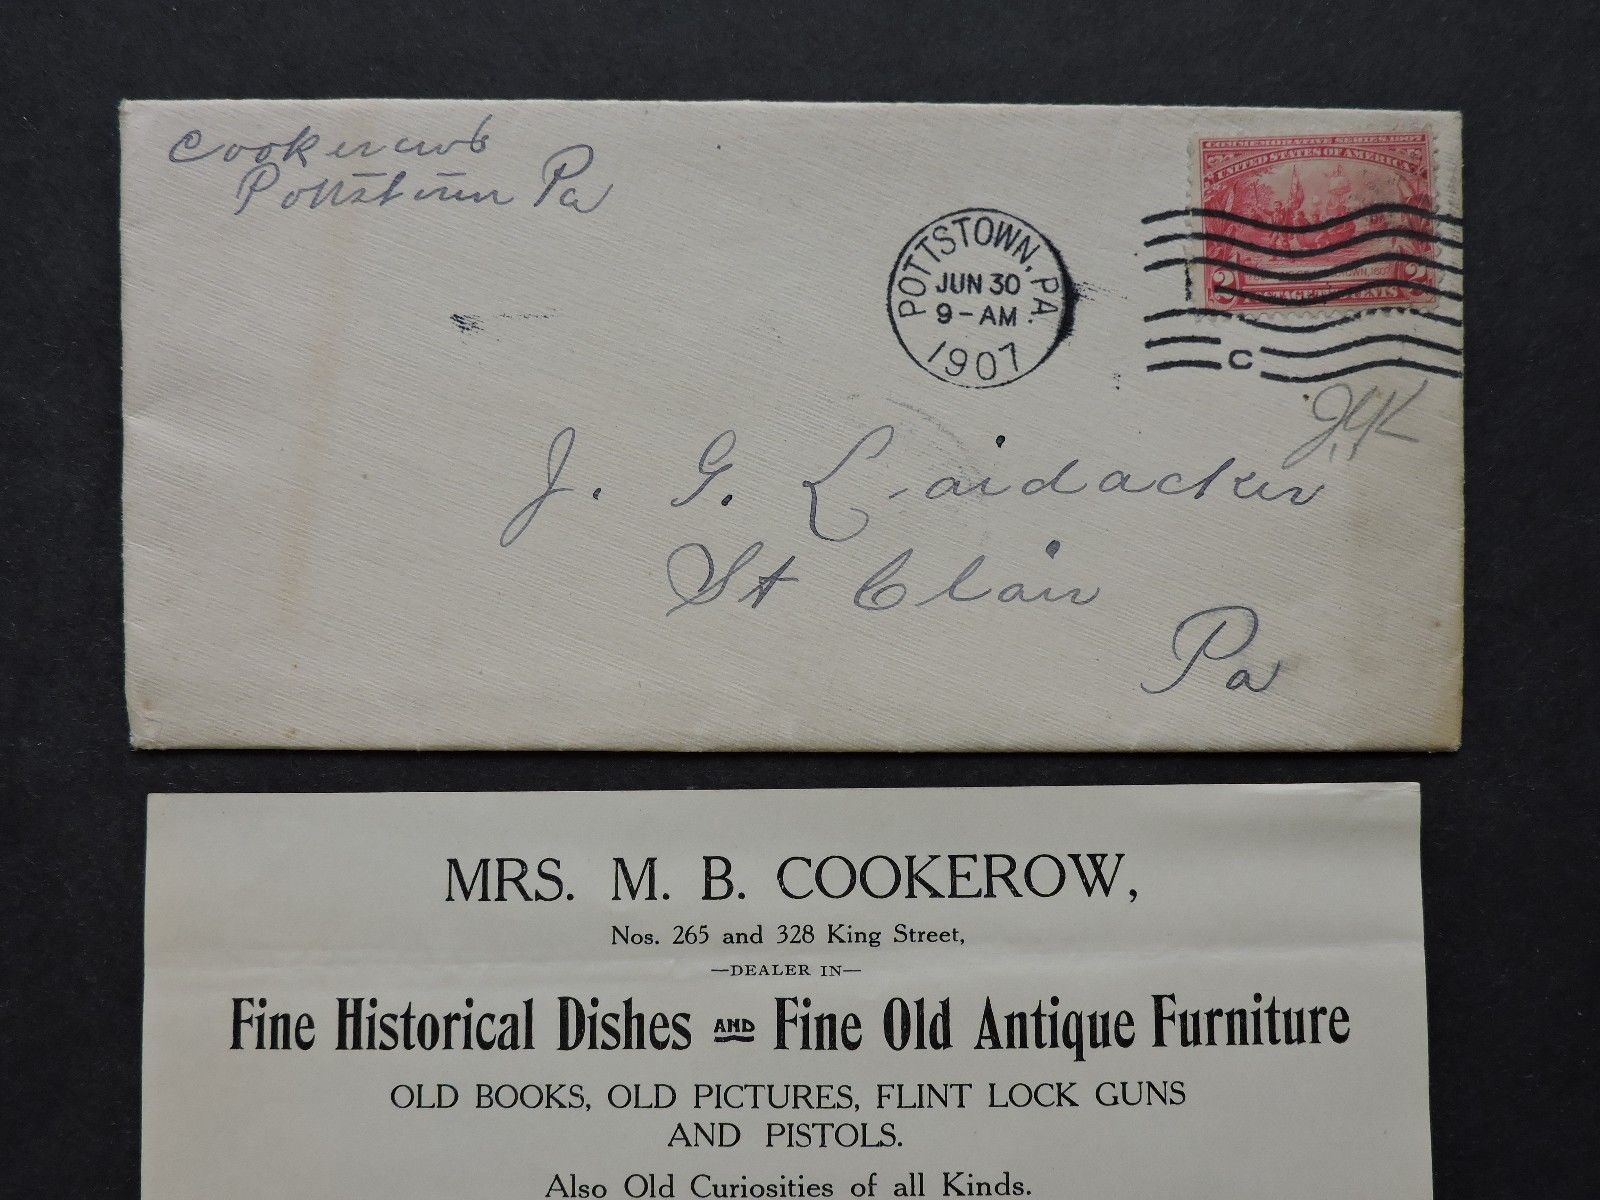 Cookerow
Pottstown Pa
COMMEMORATIVE SERIES, 1907
UNITED STATES OF AMERICA
2 2
POSTAGE TWO CENTS
POTTSTOWN, PA.
JUN 30
9-AM
1907
C
J. G. Laidacker
St Clair
Pa
MRS. M. B. COOKEROW,
Nos. 265 and 328 King Street,
—DEALER IN—
Fine Historical Dishes AND Fine Old Antique Furniture
OLD BOOKS, OLD PICTURES, FLINT LOCK GUNS
AND PISTOLS.
Also Old Curiosities of all Kinds.